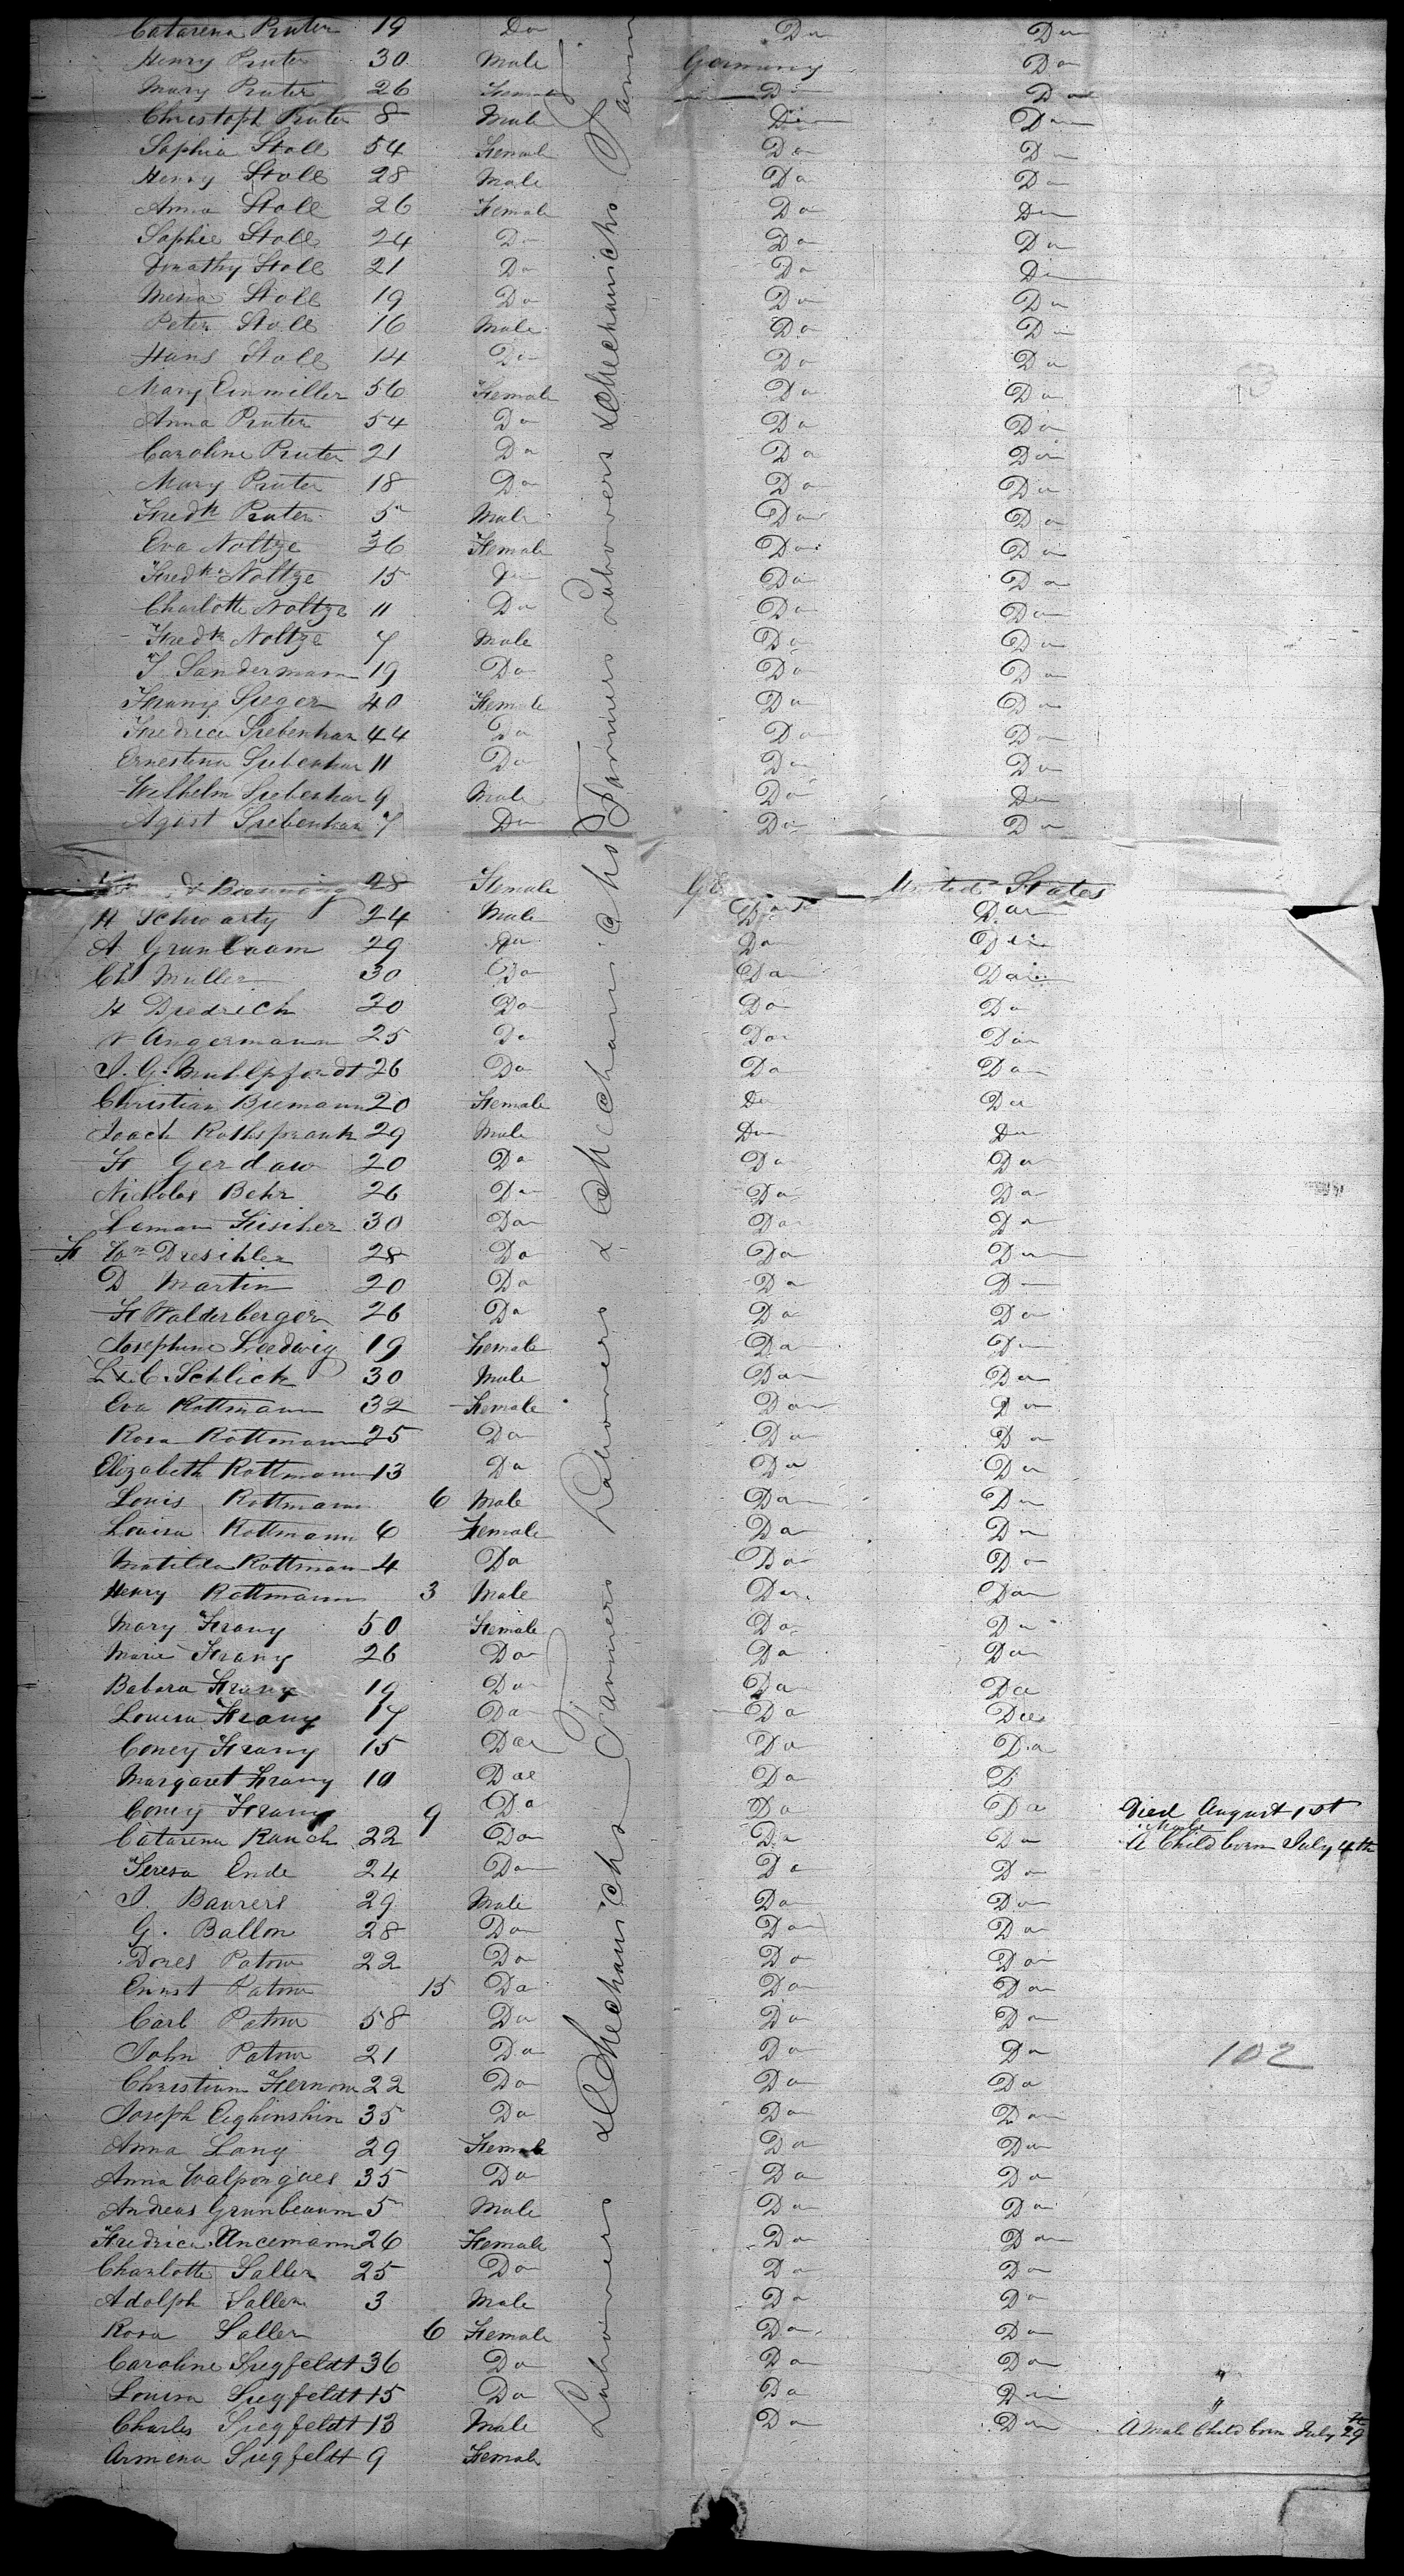 Catarena Pruter 19 Do Do Do
Henry Pruter 30 Male Germany Do
Mary Pruter 26 Female Do Do
Christoph Pruter 8 Male Do Do
Sophia Stoll 54 Female Do Do
Henry Stoll 28 Male Do Do
Anna Stoll 26 Female Do Do
Sophie Stoll 24 Do Do Do
Dorathy Stoll 21 Do Do Do
Mena Stoll 19 Do Do Do
Peter Stoll 16 Male Do Do
Hans Stoll 14 Do Do Do
Mary Einmiller 56 Female Do Do
Anna Pruter 54 Do Do Do
Caroline Pruter 21 Do Do Do
Mary Pruter 18 Do Do Do
Fredk Pruter 5 Male Do Do
Eva Noltze 36 Female Do Do
Fredka Noltze 15 Do Do Do
Charlotte Noltze 11 Do Do Do
Fredk Noltze 7 Male Do Do
J Sandermann 19 Do Do Do
Franz Sieger 40 Female Do Do
Fredrica Siebenhar 44 Do Do Do
Ernestina Siebenhar 11 Do Do Do
Wilhelm Siebenhar 9 Male Do Do
Agust Siebenhar 7 Do Do Do
Farmers Labourers & Mechanicks
28 Female United States
H Schwartz 24 Male Do Do
A Grunbaum 29 Do Do Do
Ch Muller 30 Do Do Do
H Diedrich 20 Do Do Do
Angermann 25 Do Do Do
J. G. Muhlpfordt 26 Do Do Do
Christian Biemann 20 Female Do Do
Joach Rothsprank 29 Male Do Do
F Gerdaw 20 Do Do Do
Nicholas Behr 26 Do Do Do
Leman Fischer 30 Do Do Do
F Wm Dreschler 28 Do Do Do
D Martin 20 Do Do Do
F Walderberger 26 Do Do Do
Josephine Leedwig 19 Female Do Do
L. C. Schlick 30 Male Do Do
Eva Rottmann 32 Female Do Do
Rosa Rottmann 25 Do Do Do
Elizabeth Rottmann 13 Do Do Do
Louis Rottmann 6 Male Do Do
Louisa Rottmann 6 Female Do Do
Matilda Rottmann 4 Do Do Do
Henry Rottmann 3 Male Do Do
Farmers Labourers & Mechanicks
Mary Franz 50 Female Do Do
Marie Franz 26 Do Do Do
Babara Franz 19 Do Do Do
Louisa Franz 17 Do Do Do
Coney Franz 15 Do Do Do
Margaret Franz 10 Do Do D
Coney Franz 9 Do Do Do Died August 1st
Catarena Rauch 22 Do Do Do A Male Child born July 4th
Teresa Ende 24 Do Do Do
J. Baurers 29 Male Do Do
G. Ballon 28 Do Do Do
Dores Patow 22 Do Do Do
Ernst Patow 15 Do Do Do
Carl Patow 58 Do Do Do
John Patow 21 Do Do Do
102
Christian Fernow 22 Do Do Do
Joseph Eighinshin 35 Do Do Do
Anna Lang 29 Female Do Do
Anna Walpongues 35 Do Do Do
Andreas Grunbeaum 5 Male Do Do
Fredrica Uncemann 26 Female Do Do
Charlotte Saller 25 Do Do Do
Adolph Saller 3 Male Do Do
Rosa Saller 6 Female Do Do
Caroline Siegfeldt 36 Do Do Do "
Louisa Siegfeldt 15 Do Do Do "
Charles Siegfeldt 13 Male Do Do A Male Child born July 29th
Armena Siegfeldt 9 Female
Labourers & Mechanicks